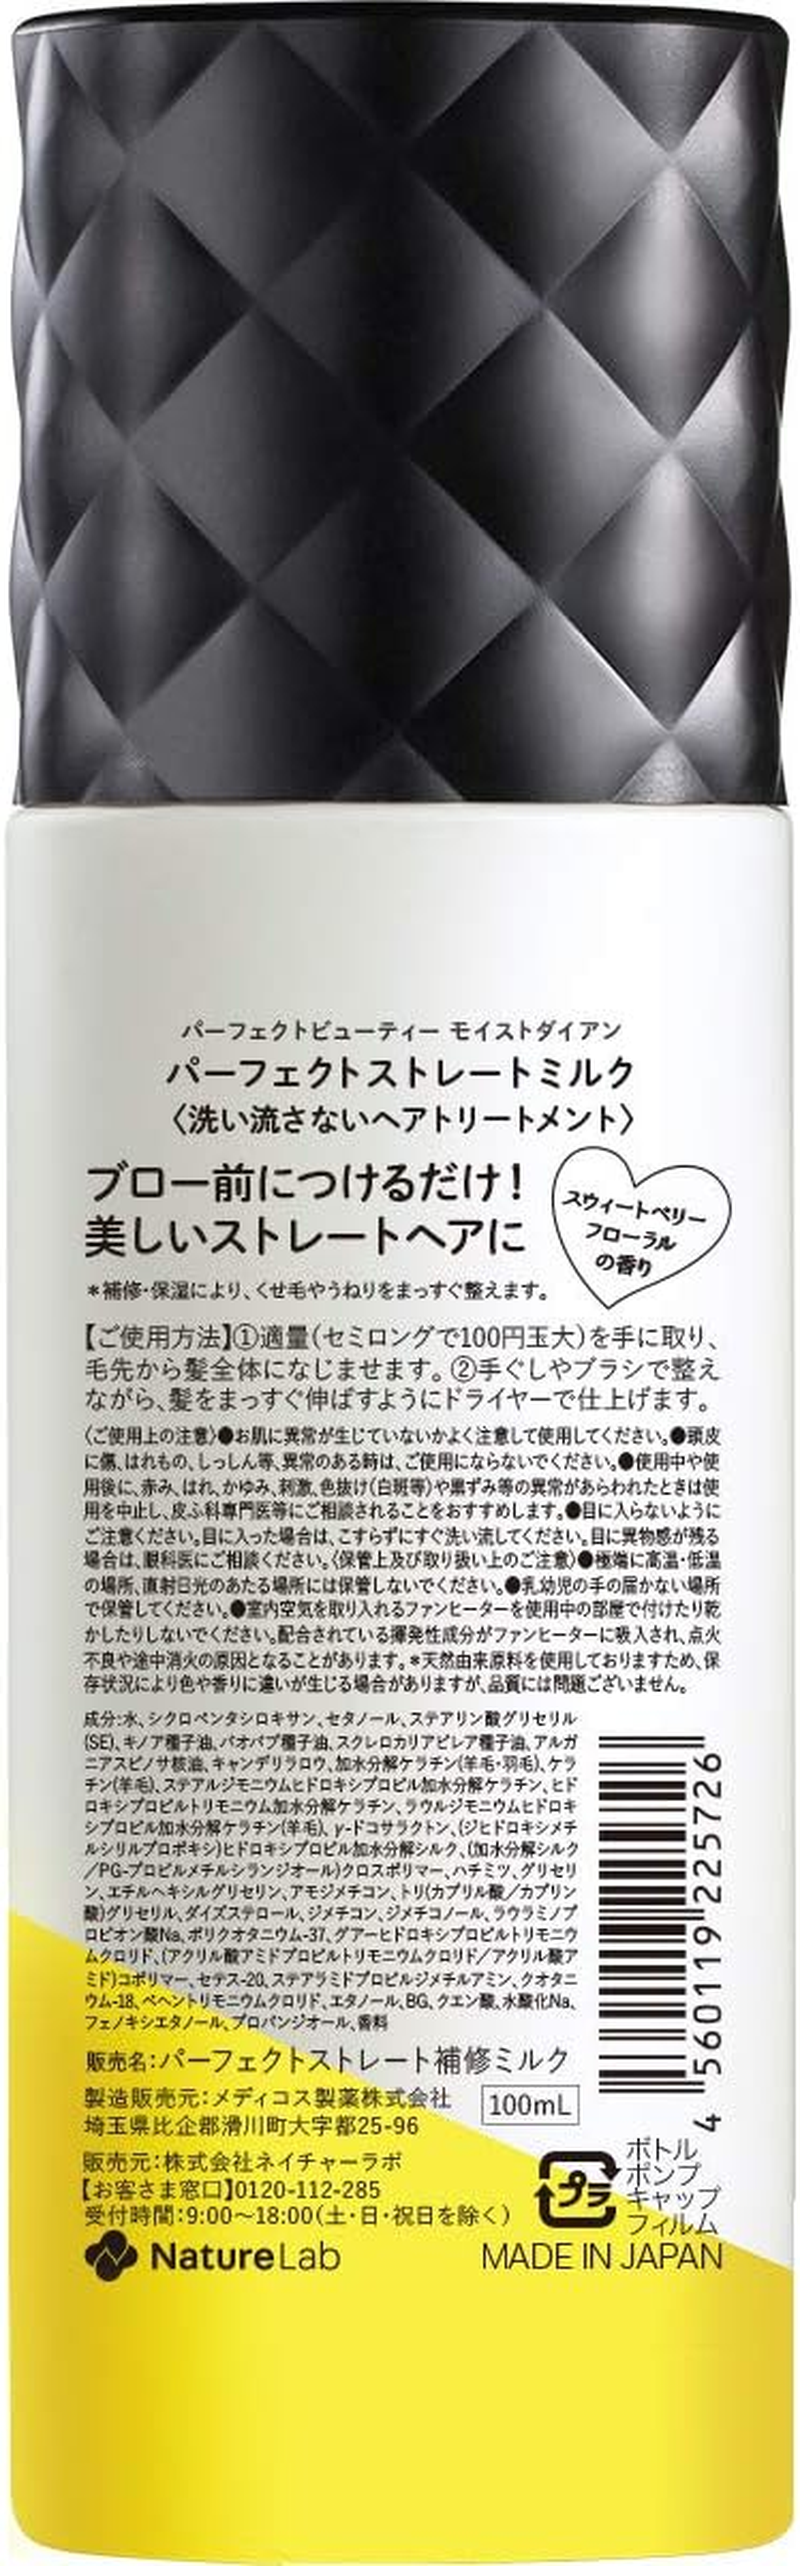 パーフェクトビューティー モイストダイアン
パーフェクトストレートミルク
〈洗い流さないヘアトリートメント〉
ブロー前につけるだけ！
美しいストレートヘアに
スウィートベリー
フローラル
の香り
＊補修・保湿により、くせ毛やうねりをまっすぐ整えます。
【ご使用方法】①適量（セミロングで100円玉大）を手に取り、
毛先から髪全体になじませます。②手ぐしやブラシで整え
ながら、髪をまっすぐ伸ばすようにドライヤーで仕上げます。
〈ご使用上の注意〉●お肌に異常が生じていないかよく注意して使用してください。●頭皮
に傷、はれもの、しっしん等、異常のある時は、ご使用にならないでください。●使用中や使
用後に、赤み、はれ、かゆみ、刺激、色抜け（白斑等）や黒ずみ等の異常があらわれたときは使
用を中止し、皮ふ科専門医等にご相談されることをおすすめします。●目に入らないように
ご注意ください。目に入った場合は、こすらずにすぐ洗い流してください。目に異物感が残る
場合は、眼科医にご相談ください。〈保管上及び取り扱い上のご注意〉●極端に高温・低温
の場所、直射日光のあたる場所には保管しないでください。●乳幼児の手の届かない場所
で保管してください。●室内空気を取り入れるファンヒーターを使用中の部屋で付けたり乾
かしたりしないでください。配合されている揮発性成分がファンヒーターに吸入され、点火
不良や途中消火の原因となることがあります。＊天然由来原料を使用しておりますため、保
存状況により色や香りに違いが生じる場合がありますが、品質には問題ございません。
成分:水、シクロペンタシロキサン、セタノール、ステアリン酸グリセリル
(SE)、キノア種子油、バオバブ種子油、スクレロカリアビレア種子油、アルガ
ニアスピノサ核油、キャンデリラロウ、加水分解ケラチン(羊毛・羽毛)、ケラ
チン(羊毛)、ステアルジモニウムヒドロキシプロピル加水分解ケラチン、ヒド
ロキシプロピルトリモニウム加水分解ケラチン、ラウルジモニウムヒドロキ
シプロピル加水分解ケラチン(羊毛)、γ-ドコサラクトン、(ジヒドロキシメチ
ルシリルプロポキシ)ヒドロキシプロピル加水分解シルク、(加水分解シルク
／PG-プロピルメチルシランジオール)クロスポリマー、ハチミツ、グリセリ
ン、エチルヘキシルグリセリン、アモジメチコン、トリ(カプリル酸／カプリン
酸)グリセリル、ダイズステロール、ジメチコン、ジメチコノール、ラウラミノプ
ロピオン酸Na、ポリクオタニウム-37、グアーヒドロキシプロピルトリモニウ
ムクロリド、(アクリル酸アミドプロピルトリモニウムクロリド／アクリル酸ア
ミド)コポリマー、セテス-20、ステアラミドプロピルジメチルアミン、クオタニ
ウム-18、ベヘントリモニウムクロリド、エタノール、BG、クエン酸、水酸化Na、
フェノキシエタノール、プロパンジオール、香料
販売名：パーフェクトストレート補修ミルク
製造販売元：メディコス製薬株式会社
埼玉県比企郡滑川町大字都25-96
100mL
販売元：株式会社ネイチャーラボ
【お客さま窓口】0120-112-285
受付時間：9:00～18:00（土・日・祝日を除く）
プラ
ボトル
ポンプ
キャップ
フィルム
NatureLab
MADE IN JAPAN
4 560119 225726